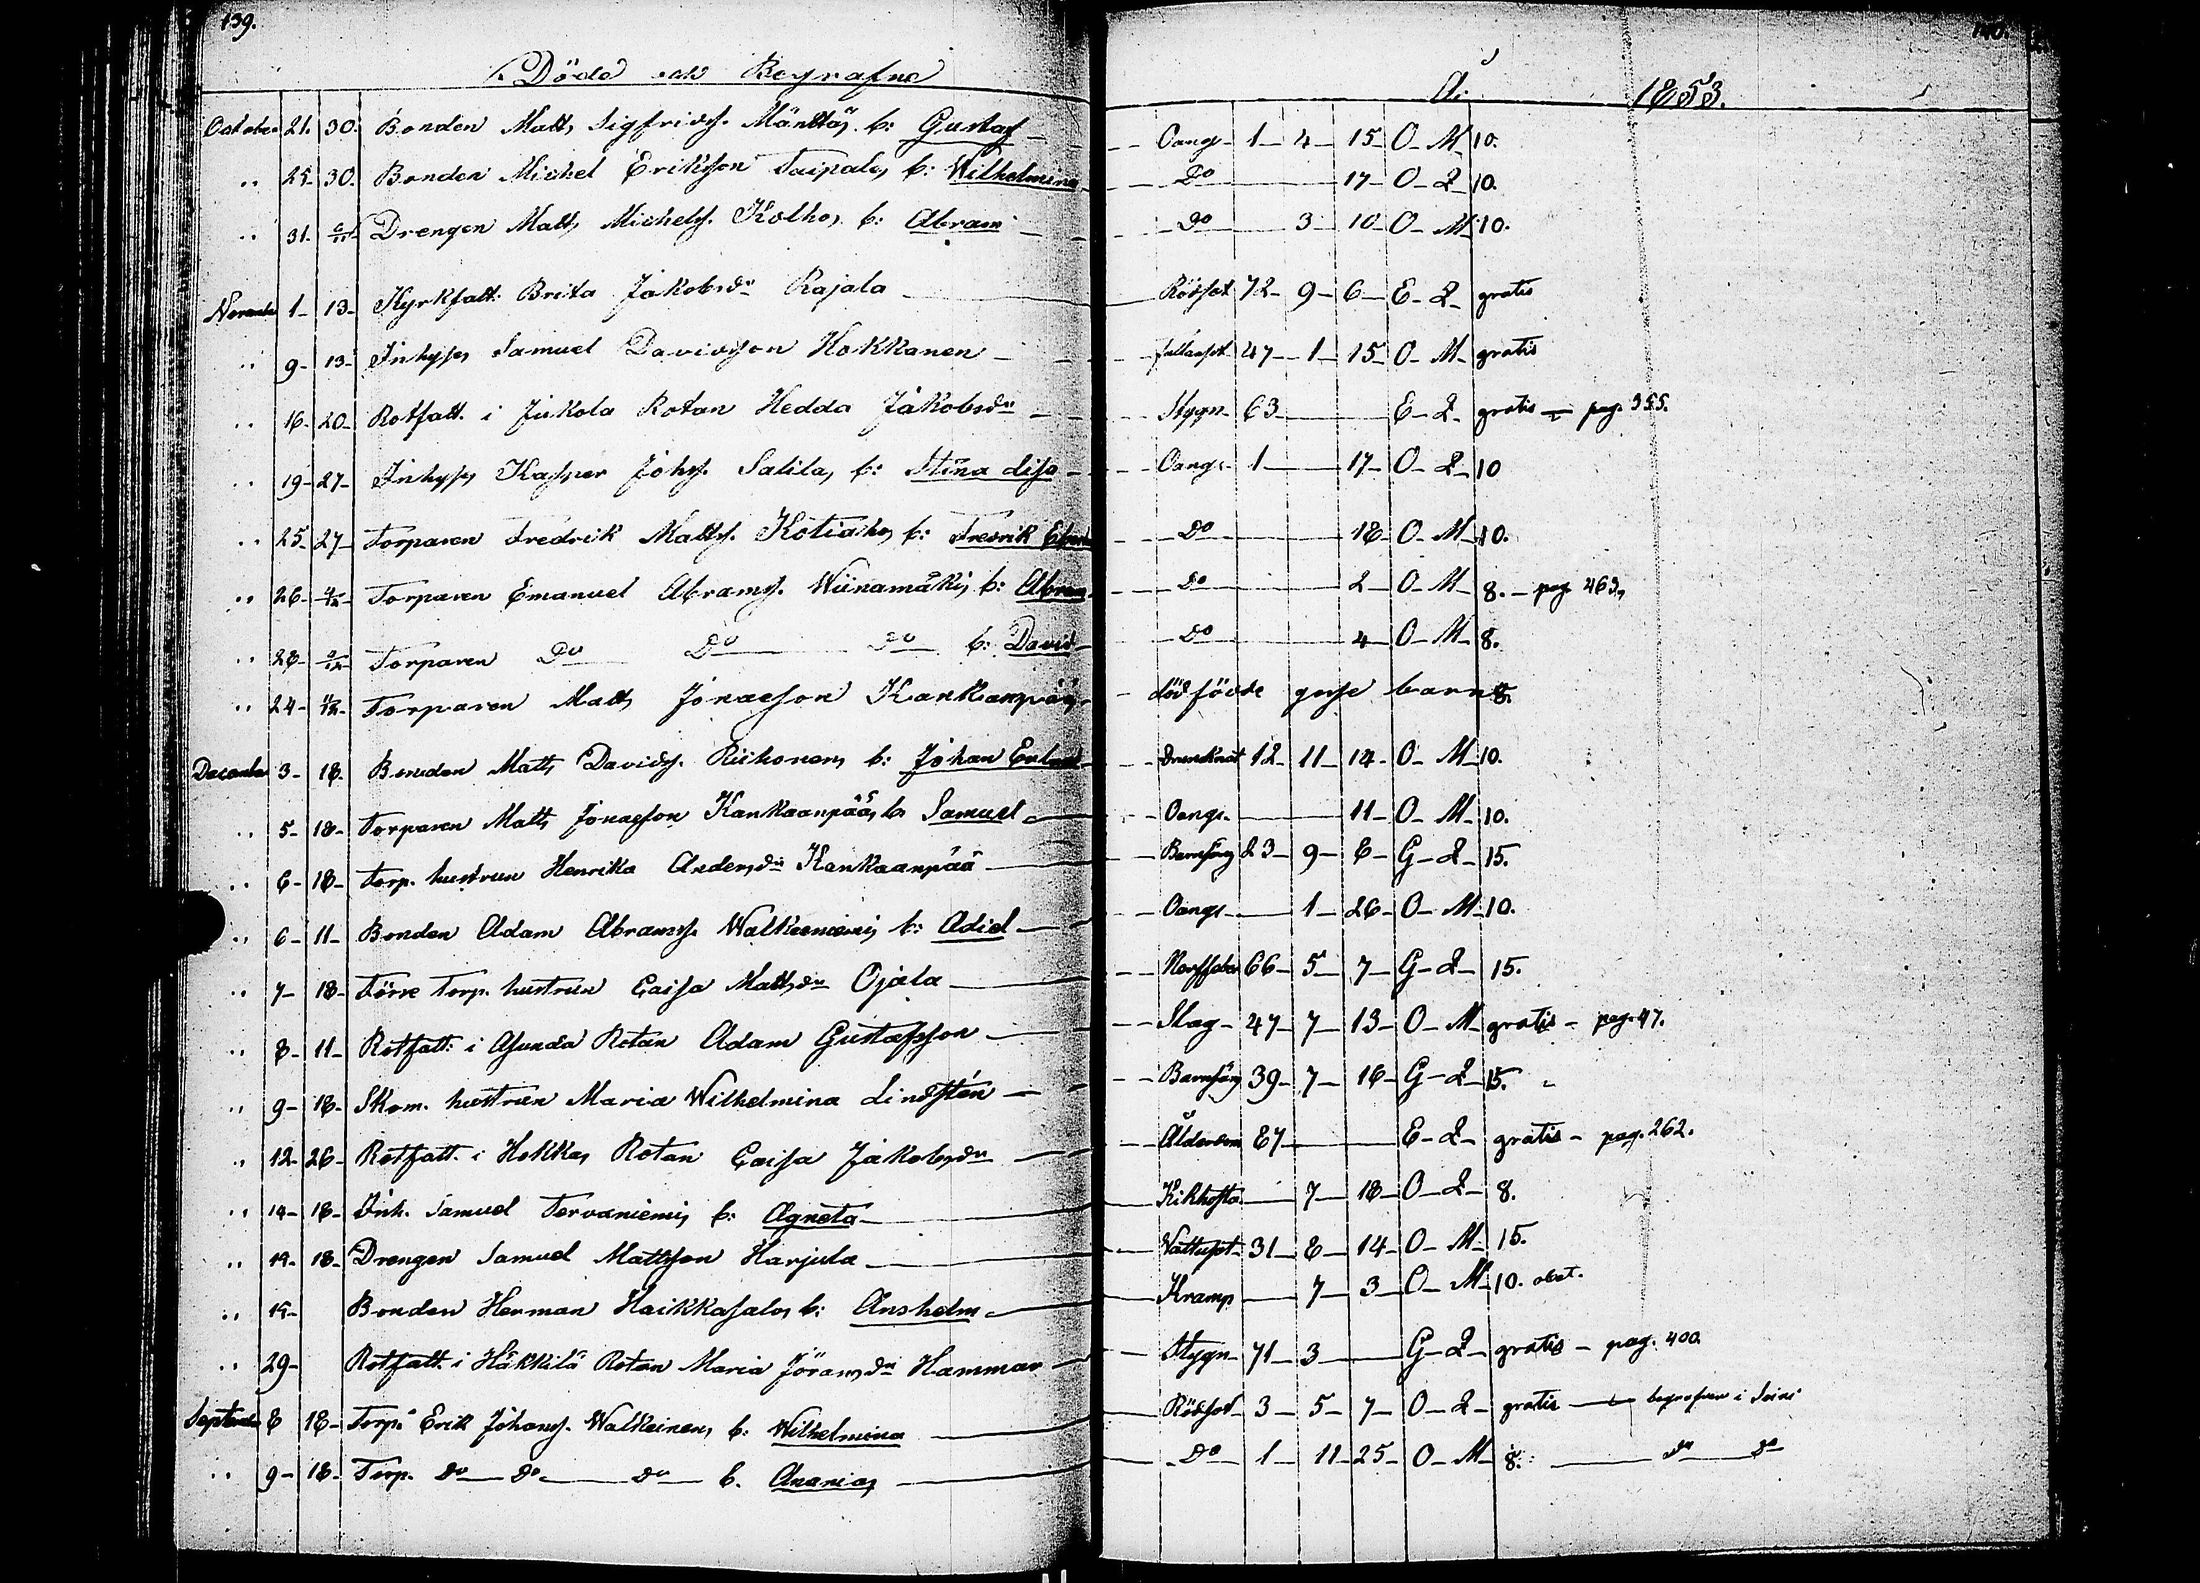 139.
140.
Döde och Begrafne
År 1853.
October 21. 30. Bonden Matts Sigfridss. Mänttäs b: Gustaf Oangs. 1 4 15 O M 10.
" 25 30. Bonden Michel Eriksson Taipales b: Wilhelmina Do 17 O Q 10.
" 31. 6/11 Drengen Matts Michelss. Kolhos b: Abram Do 3 10 O M 10.
November 1 13 Kyrkfatt: Brita Jakobsdr Rajala Rödsot 72 9 6 E Q gratis
" 9 13 Inhyses Samuel Davidsson Hokkanen fallansot 47 1 15 O M gratis
" 16 20 Rotfatt. i Jukola Rotan Hedda Jakobsdr Stygn 63 E Q gratis pag. 355.
" 19 27 Inhyses Kasper Johss. Salilas b: Stina Lisa Oangs. 1 17 O Q 10
" 25 27 Torparen Fredrik Mattss. Kotiahos b: Fredrik Do 18 O M 10.
" 26 4/12 Torparen Emanuel Abramss. Wiinamäkis b: Abram Do 2 O M 8. pag 463.
" 28 Torparen Do Do Do b: David Do 4 O M 8.
" 24 Torparen Matts Jonasson Kankanpääs dödfödde gosse barn 8.
December 3 18 Bonden Matts Davidss. Riihonens b: Johan Drunknat 12 11 14 O M 10.
" 5 18 Torparen Matts Jonasson Kankaanpääs b. Samuel Oangs. 11 O M 10.
" 6 18 Torp. hustrun Henrika Andersdr Kankaanpää Barnsäng 23 9 8 G Q 15.
" 6 11 Bonden Adam Abramss. Walkeeniemis b: Adiel Oangs 1 26 O M 10.
" 7 18 Förre Torp. hustrun Caisa Mattsdr Ojala 66 5 7 G Q 15.
" 8 11 Rotfatt: i Asunda Rotan Adam Gustafsson Slag 47 7 13 O M gratis pag. 47.
" 9 18 Skom. hustrun Maria Wilhelmina Lindstén Barnsäng 39 7 16 G Q 15.
" 12 26 Rotfatt. i Hokkas Rotan Caisa Jakobsdr Ålderdom 87 E Q gratis pag. 262.
" 14 18 Inh. Samuel Tervaniemis b: Agneta Kikhosta 7 18 O Q 8.
" 14 18 Drengen Samuel Mattsson Harjula Vattusot 31 8 14 O M 15.
" 14 Bonden Herman Haikkasalos b: Anshelm Kramp 7 3 O M 10. obet.
" 29 Rotfatt. i Häkkilä Rotan Maria Jöransdr Hammar Stygn 71 3 G Q gratis pag. 400.
September 8 18 Torp. Erik Johanss. Walkeinens b: Wilhelmina Rödsot 3 5 7 O Q gratis begrafven i
" 9 18 Torp. Do Do Do b. Ananias Do 1 11 25 O M 8. Do Do